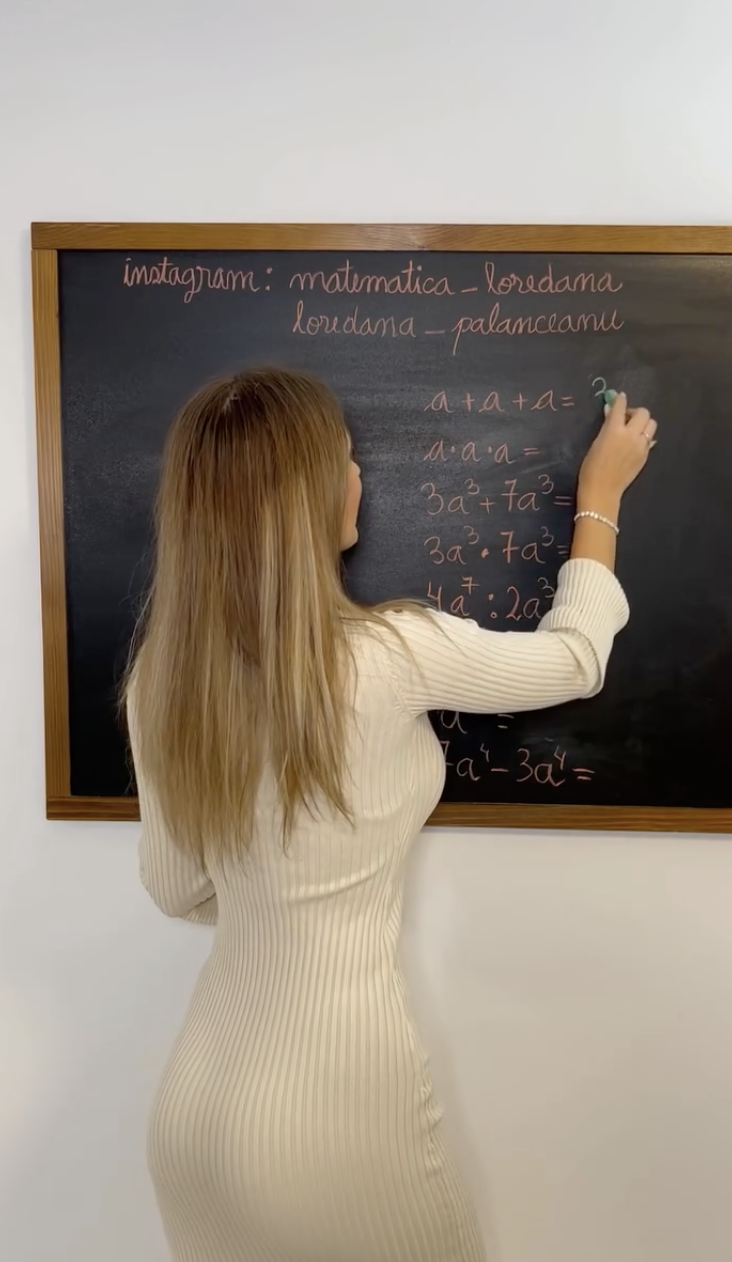 instagram: matematica_loredana
loredana_palanceanu
a + a + a =
a · a · a =
3a³ + 7a³ =
3a³ · 7a³ =
4a⁷ : 2a³
a =
7a⁴ - 3a⁴ =